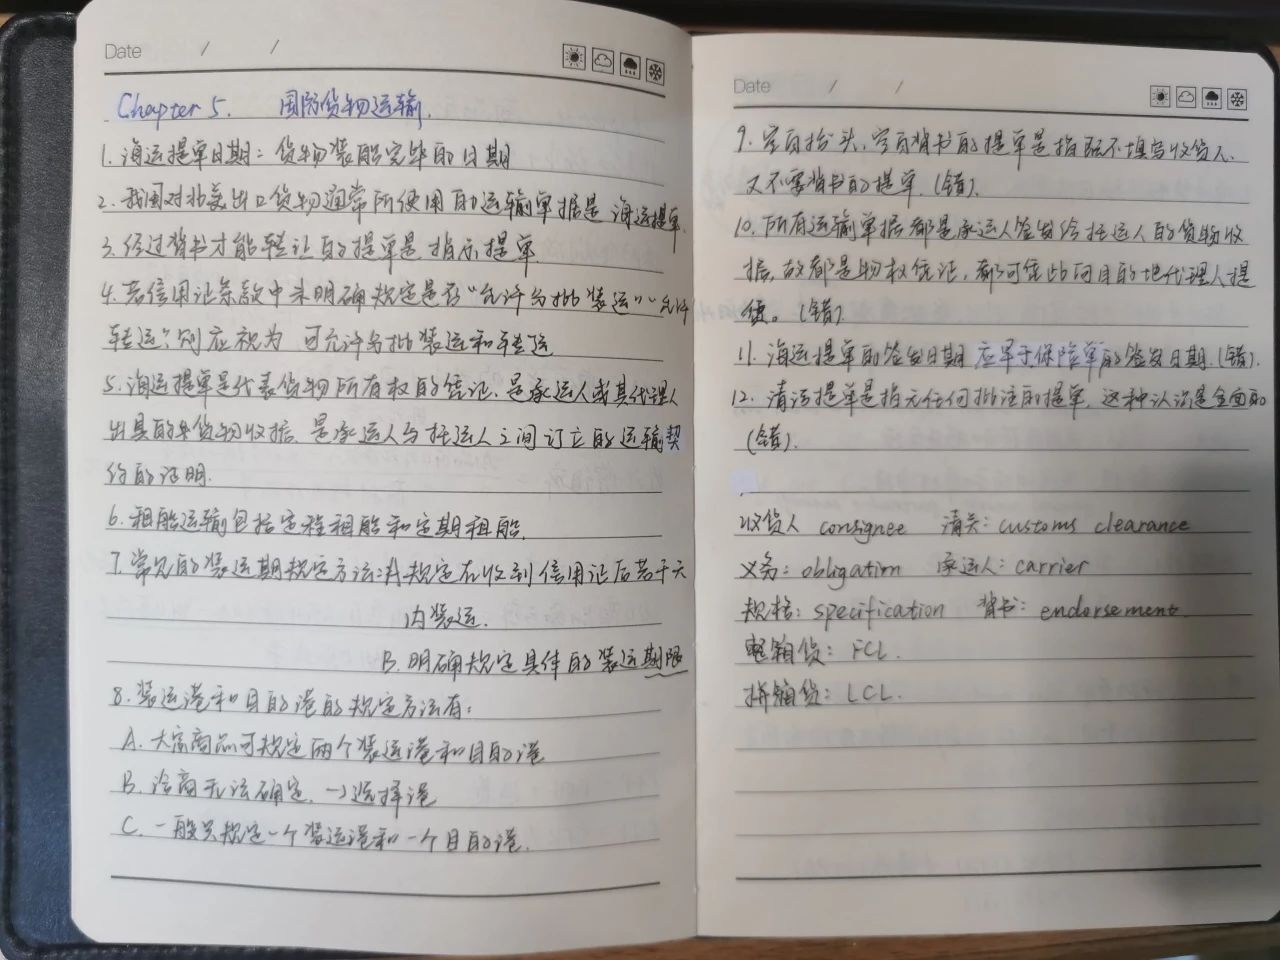 Date / /
Chapter 5. 国际货物运输.
1. 海运提单日期：货物装船完毕的日期
2. 我国对北美出口货物通常所使用的运输单据是 海运提单.
3. 经过背书才能转让的提单是 指示提单.
4. 若信用证条款中未明确规定是否“允许分批装运”“允许
转运”，则应视为 可允许分批装运和转运
5. 海运提单是代表货物所有权的凭证. 是承运人或其代理人
出具的货物收据. 是承运人与托运人之间订立的运输契
约的证明.
6. 租船运输包括定程租船和定期租船.
7. 常见的装运期规定方法：A. 规定在收到信用证后若干天
内装运.
B. 明确规定具体的装运期限
8. 装运港和目的港的规定方法有：
A. 大宗商品可规定两个装运港和目的港
B. 洽商无法确定. → 选择港
C. 一般只规定一个装运港和一个目的港.
Date / /
9. 空白抬头, 空白背书的提单是指既不填写收货人.
又不需背书的提单. (错).
10. 所有运输单据都是承运人签发给托运人的货物收
据, 故都是物权凭证, 都可凭此向目的地代理人提
货。(错)
11. 海运提单的签发日期 应早于保险单的签发日期. (错).
12. 清洁提单是指无任何批注的提单. 这种认识是全面的
(错).
收货人 consignee 清关：customs clearance
义务：obligation 承运人：carrier
规格：specification 背书：endorsement.
整箱货：FCL.
拼箱货：LCL.